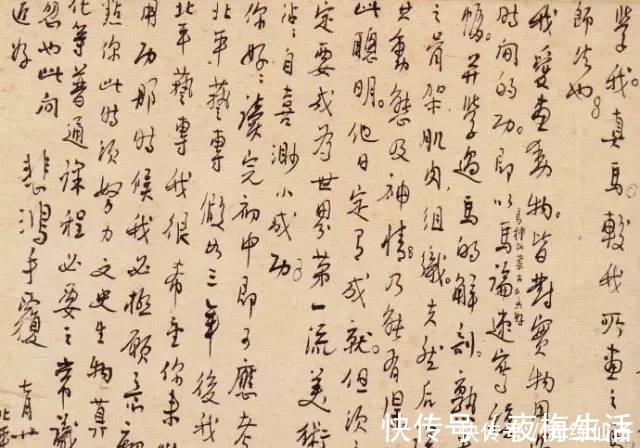 學我。真馬較我所畫之
師法也。
我愛畫動物。皆對實物用
時間的功。即以馬論速寫稿
幅。并學過馬的解剖。熟
之骨架肌肉組織。夫然後
其動態及神情。乃能有得
此聰明。他日定有成就。但須
定要成為世界第一流美術
沾沾自喜渺小成功
你好好讀完初中即可應考
北平藝專 假如三年後我
北平藝專我很希望你來
用功那時候我必極願意
點你此時須努力文史生物算
化等普通課程必要之常識
忽也此問
近好
悲鴻手覆
七月廿
快传号/夜梅生活